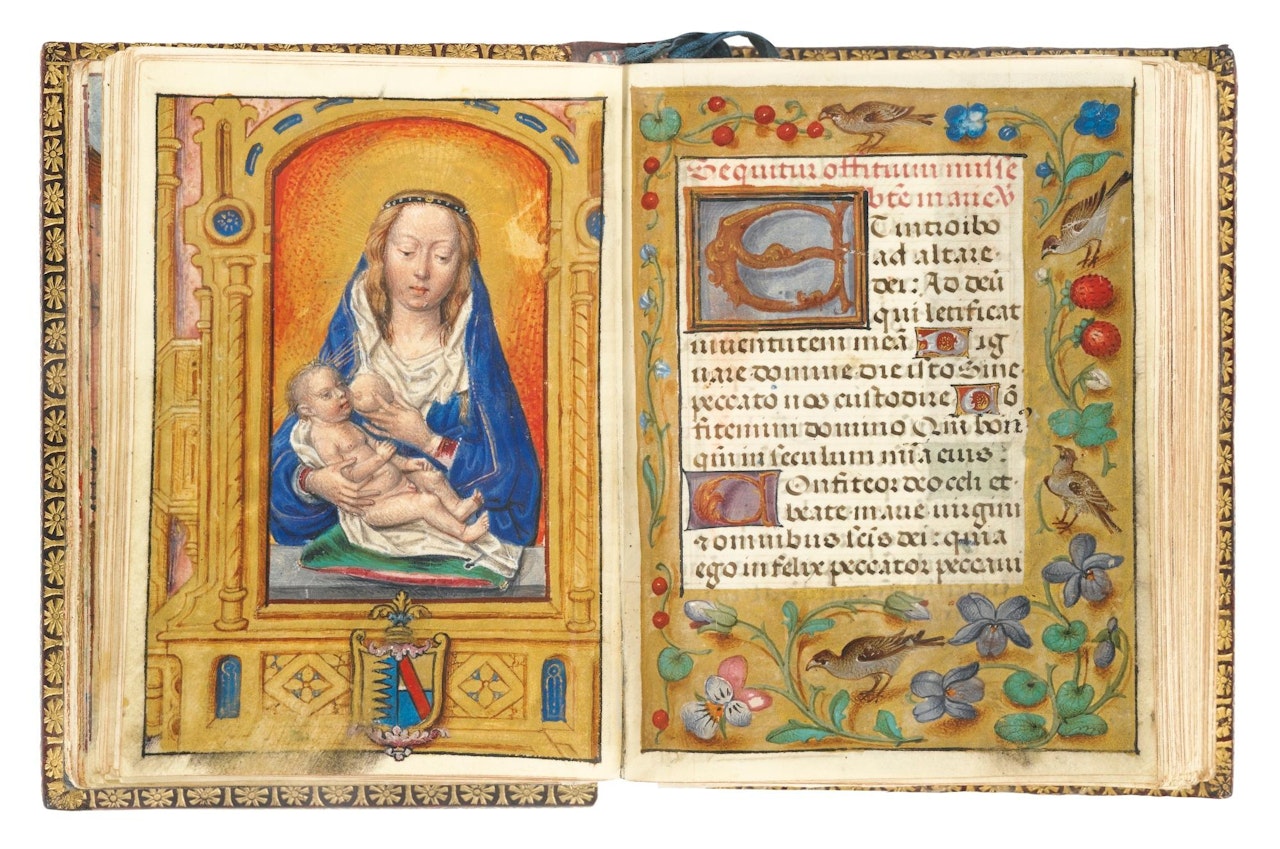 Sequitur offitium misse
bte marie v
ET introibo
ad altare
dei: Ad deū
qui letificat
iuventutem meā Dig
nare domine die isto Sine
peccato nos custodire Cō
fitemini domino Qm̄ bonꝰ
qm̄ in seculum mīa eius:
COnfiteor deo celi et
beate marie virgini
⁊ omnibus scīs dei: quia
ego infelix peccator peccaui